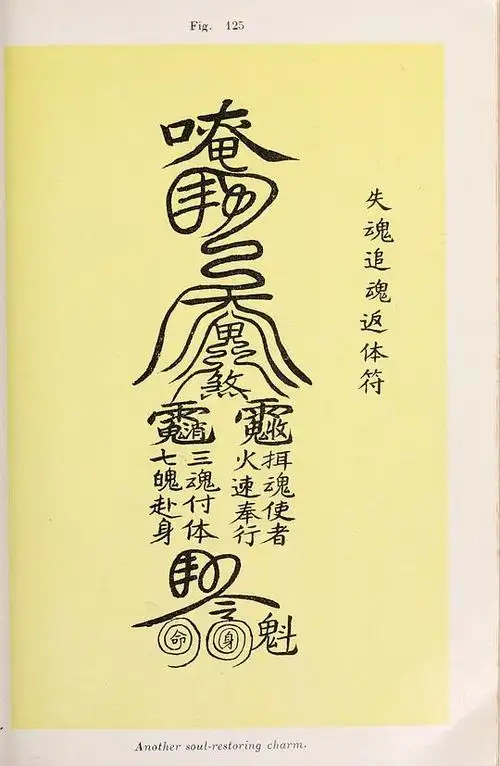 Fig. 125
失魂追魂返体符
唵
煞
收
消
揖魂使者
火速奉行
三魂付体
七魄赴身
魁
身
命
Another soul-restoring charm.